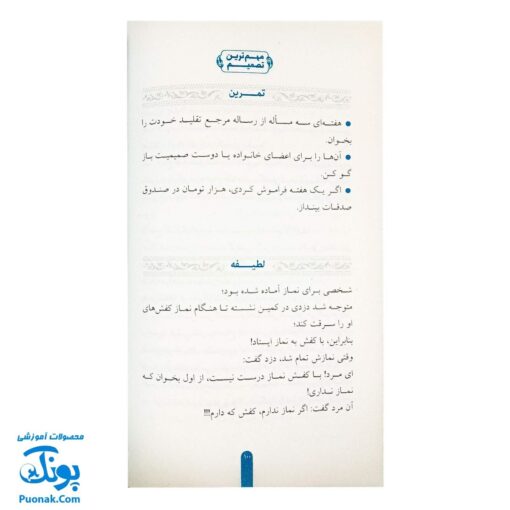 مهم‌ترین
تصمیم
تمرین
● هفته‌ای سه مسأله از رساله مرجع تقلید خودت را
بخوان.
● آن‌ها را برای اعضای خانواده یا دوست صمیمیت باز
گو کن.
● اگر یک هفته فراموش کردی، هزار تومان در صندوق
صدقات بینداز.
لطیفه
شخصی برای نماز آماده شده بود؛
متوجه شد دزدی در کمین نشسته تا هنگام نماز کفش‌های
او را سرقت کند؛
بنابراین، با کفش به نماز ایستاد!
وقتی نمازش تمام شد، دزد گفت:
ای مرد! با کفش نماز درست نیست، از اول بخوان که
نماز نداری!
آن مرد گفت: اگر نماز ندارم، کفش که دارم!!!!
۱۰۰
محصولات آموزشی
پونک
Puonak.Com